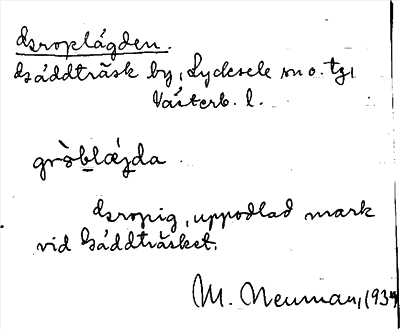 Groplägden.
Gäddträsk by, Lycksele sn o. tg,
Västerb. l.
gròblǽgda
Gropig, uppodlad mark
vid Gäddträsket.
M. Neuman, 1934